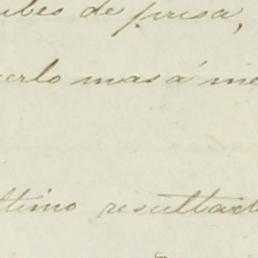 ubes de prisa,
erlo mas á me
ltimo resultad